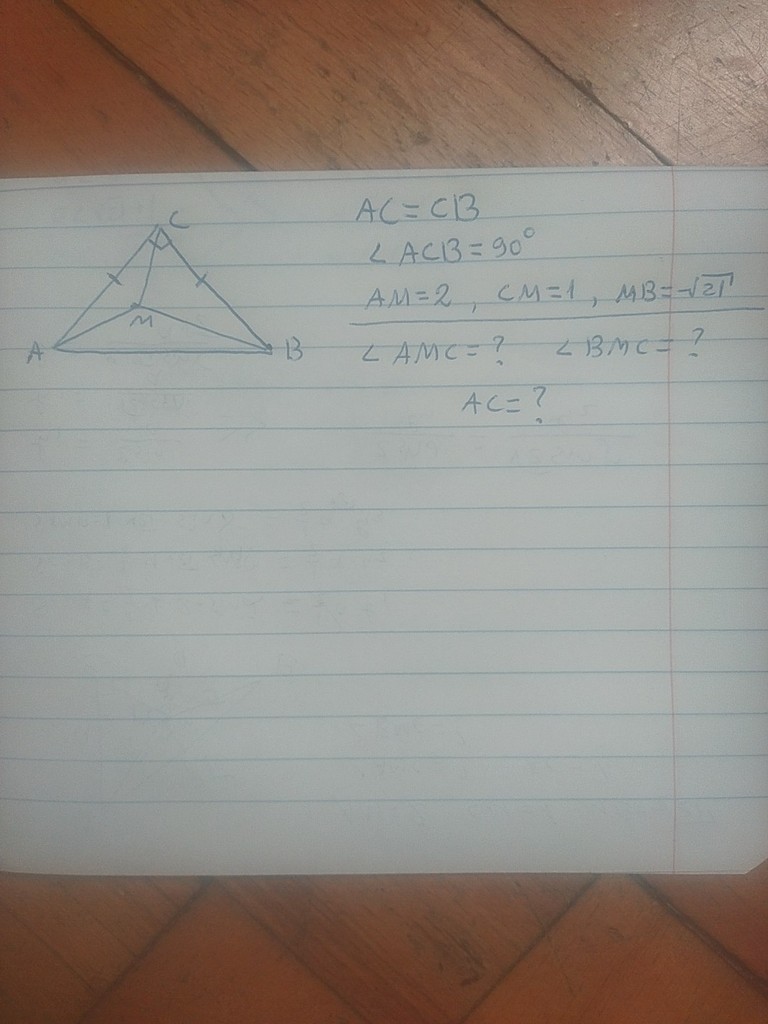 C
M
A B
AC = CB
∠ ACB = 90°
AM = 2 , CM = 1 , MB = √21
∠ AMC = ? ∠ BMC = ?
AC = ?